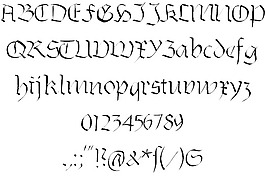 ABCDEFGHIJKLMNOP
QRSTUVWXYZabcdefg
hijklmnopqrstuvwxyz
0123456789
.,:;'"!?@&*f(/)S